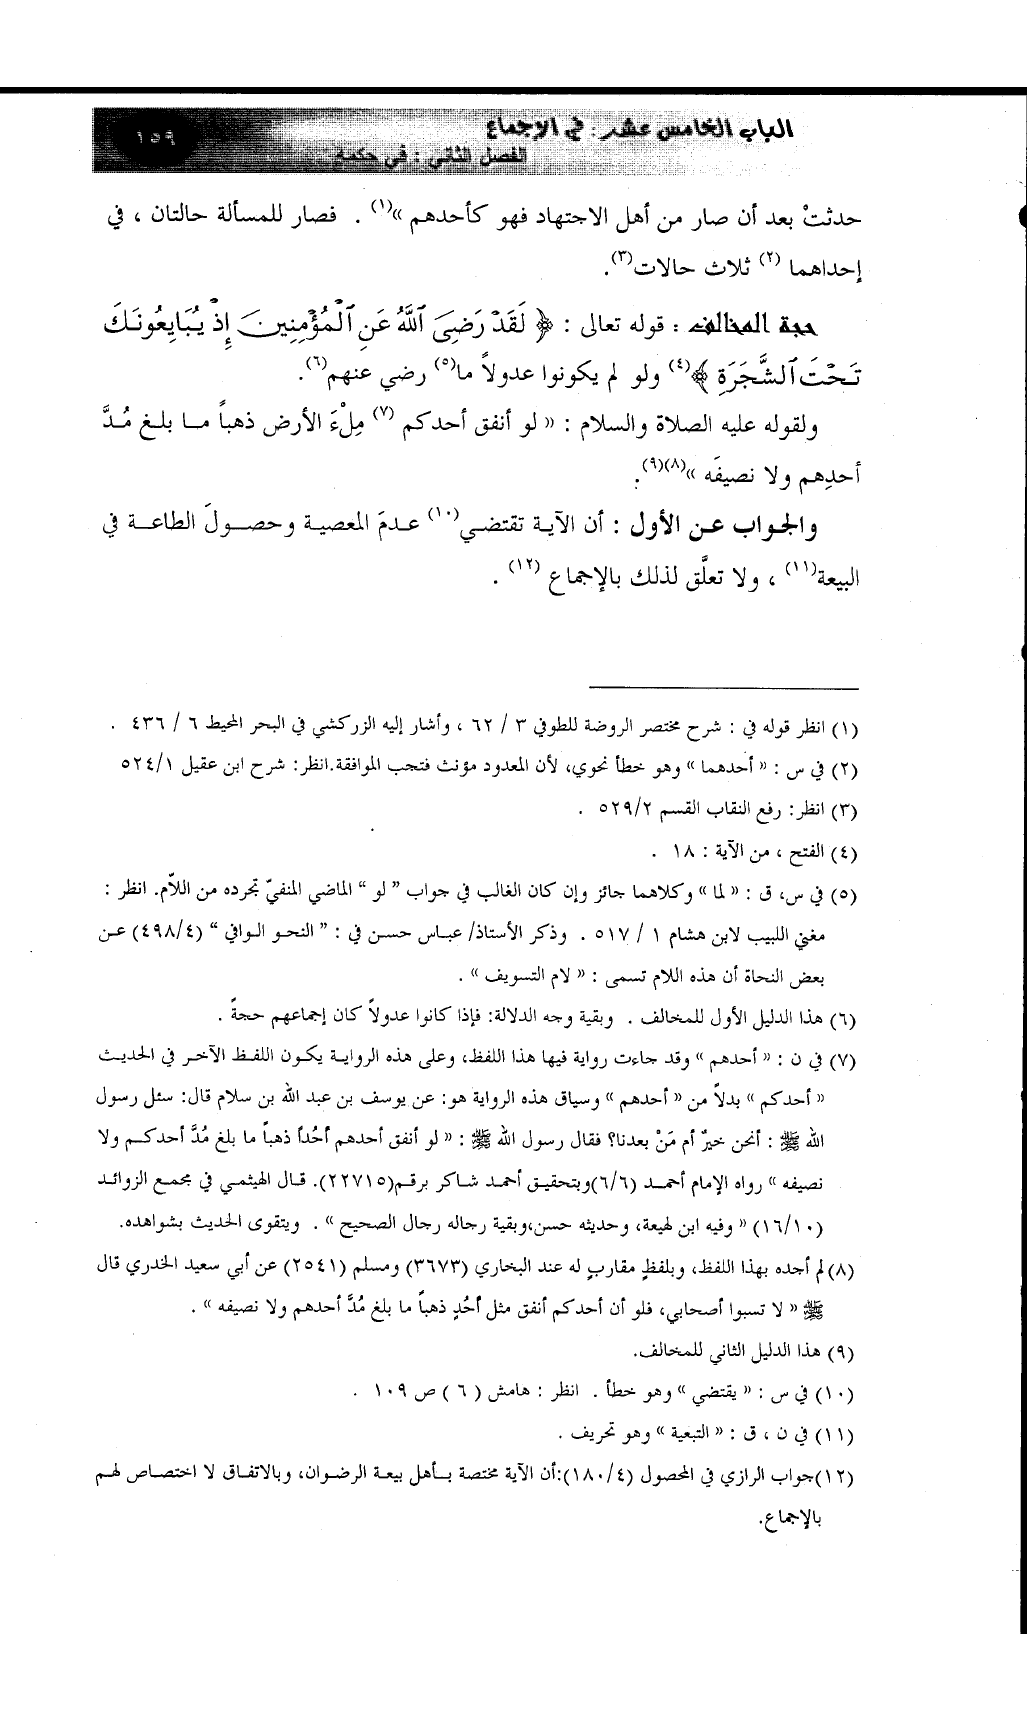 الباب الخامس عشر : في الإجماع
الفصل الثاني : في حكمه
١٥٩
حدثتْ بعد أن صار من أهل الاجتهاد فهو كأحدهم »(١) . فصار للمسألة حالتان ، في
إحداهما (٢) ثلاث حالات(٣).
حجة المخالف : قوله تعالى : ﴿ لَقَدْ رَضِيَ ٱللَّهُ عَنِ ٱلْمُؤْمِنِينَ إِذْ يُبَايِعُونَكَ
تَحْتَ ٱلشَّجَرَةِ ﴾(٤) ولو لم يكونوا عدولاً ما(٥) رضي عنهم(٦).
ولقوله عليه الصلاة والسلام : « لو أنفق أحدكم (٧) مِلْءَ الأرض ذهباً مــا بلـغ مُـدَّ
أحدِهم ولا نصيفَه »(٨)(٩).
والجواب عـن الأول : أن الآيـة تقتضـي(١٠) عـدمَ المعصيـة وحصـولَ الطاعـة في
البيعة(١١) ، ولا تعلَّق لذلك بالإجماع (١٢) .
(١) انظر قوله في : شرح مختصر الروضة للطوفي ٣ / ٦٢ ، وأشار إليه الزركشي في البحر المحيط ٦ / ٤٣٦ .
(٢) في س : « أحدهما » وهو خطأ نحوي، لأن المعدود مؤنث فتجب الموافقة.انظر: شرح ابن عقيل ٥٢٤/١
(٣) انظر: رفع النقاب القسم ٥٢٩/٢ .
(٤) الفتح ، من الآية : ١٨ .
(٥) في س، ق : « لما » وكلاهما جائز وإن كان الغالب في جواب ” لو “ الماضي المنفيّ تجرده من اللاّم. انظر :
مغني اللبيب لابن هشام ١ / ٥١٧ . وذكر الأستاذ/ عبـاس حسـن في : ” النحـو الـوافي “ (٤٩٨/٤) عـن
بعض النحاة أن هذه اللام تسمى : « لام التسويف » .
(٦) هذا الدليل الأول للمخالف . وبقية وجه الدلالة: فإذا كانوا عدولاً كان إجماعهم حجةً .
(٧) في ن : « أحدهم » وقد جاءت رواية فيها هذا اللفظ، وعلى هذه الروايـة يكـون اللفـظ الآخـر في الحديـث
« أحدكم » بدلاً من « أحدهم » وسياق هذه الرواية هو: عن يوسف بن عبد الله بن سلام قال: سئل رسول
الله ﷺ : أنحن خيرٌ أم مَنْ بعدنا؟ فقال رسول الله ﷺ : « لو أنفق أحدهم أحُداً ذهباً ما بلغ مُدَّ أحدكـم ولا
نصيفه » رواه الإمام أحمـد (٦/٦)وبتحقيـق أحمـد شـاكر برقـم(٢٢٧١٥). قـال الهيثمـي في مجمـع الزوائـد
(١٦/١٠) « وفيه ابن لهيعة، وحديثه حسن،وبقية رجاله رجال الصحيح » . ويتقوى الحديث بشواهده.
(٨)لم أجده بهذا اللفظ، وبلفظٍ مقاربٍ له عند البخاري (٣٦٧٣) ومسلم (٢٥٤١) عن أبي سعيد الخدري قال
ﷺ « لا تسبوا أصحابي، فلو أن أحدكم أنفق مثل أُحُدٍ ذهباً ما بلغ مُدَّ أحدهم ولا نصيفه » .
(٩) هذا الدليل الثاني للمخالف.
(١٠) في س : « يقتضي » وهو خطأ . انظر : هامش ( ٦ ) ص ١٠٩ .
(١١) في ن ، ق : « التبعية » وهو تحريف .
(١٢)جواب الرازي في المحصول (١٨٠/٤):أن الآية مختصة بـأهل بيعـة الرضـوان، وبالاتفـاق لا اختصـاص لهـم
بالإجماع.